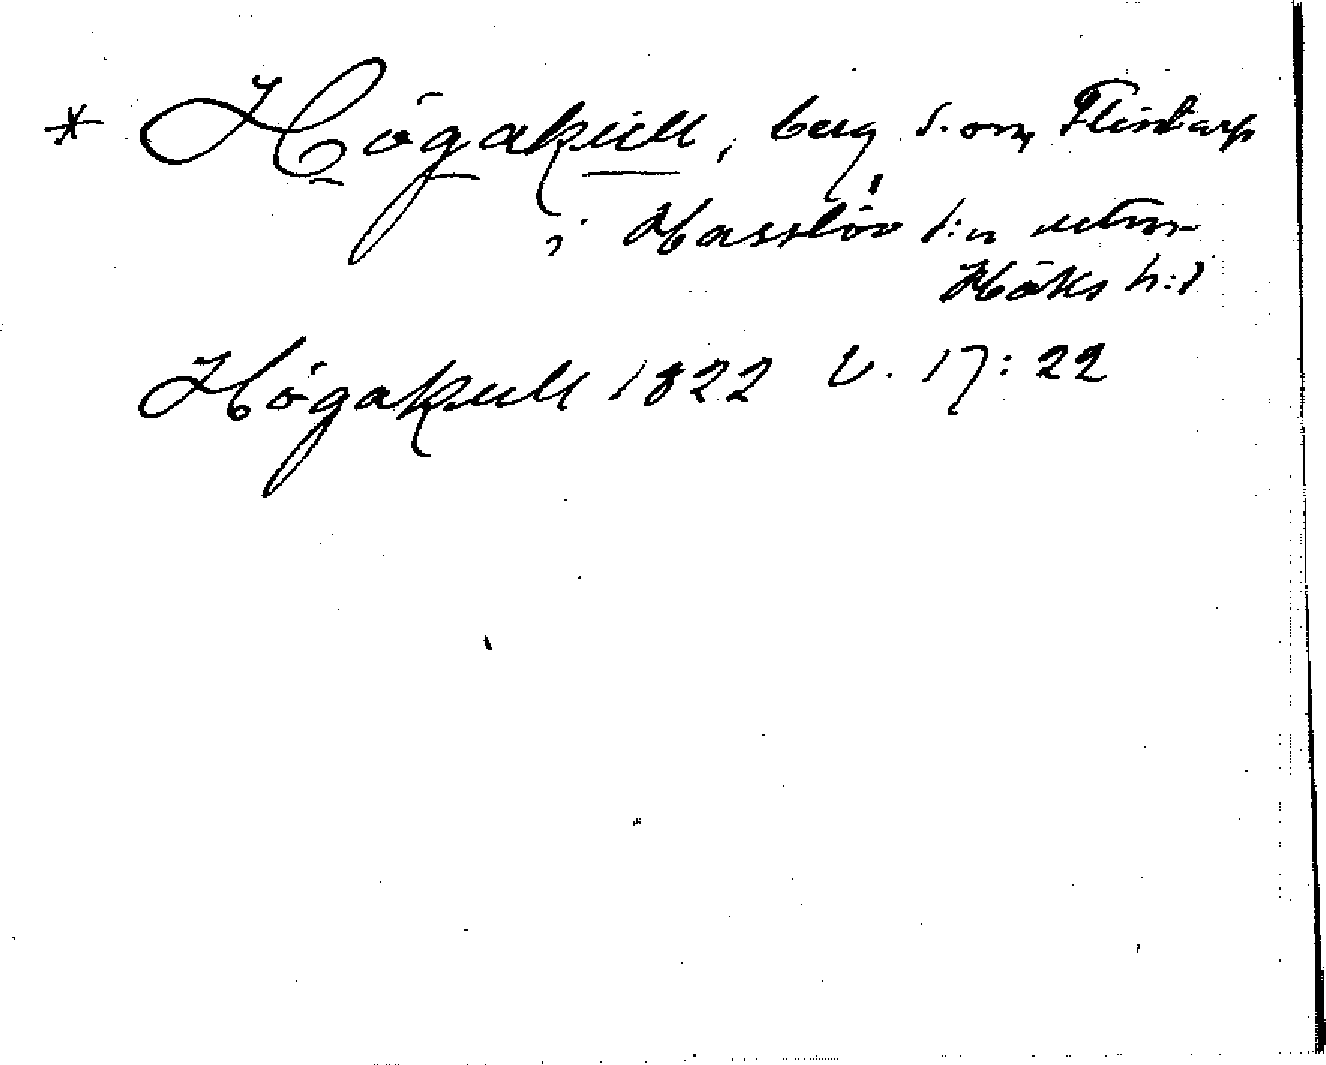 * Högakull, berg S. om Flintarp
i Hasslöv s:n utom
Höks h:d
Högakull 1822 V. 17:22